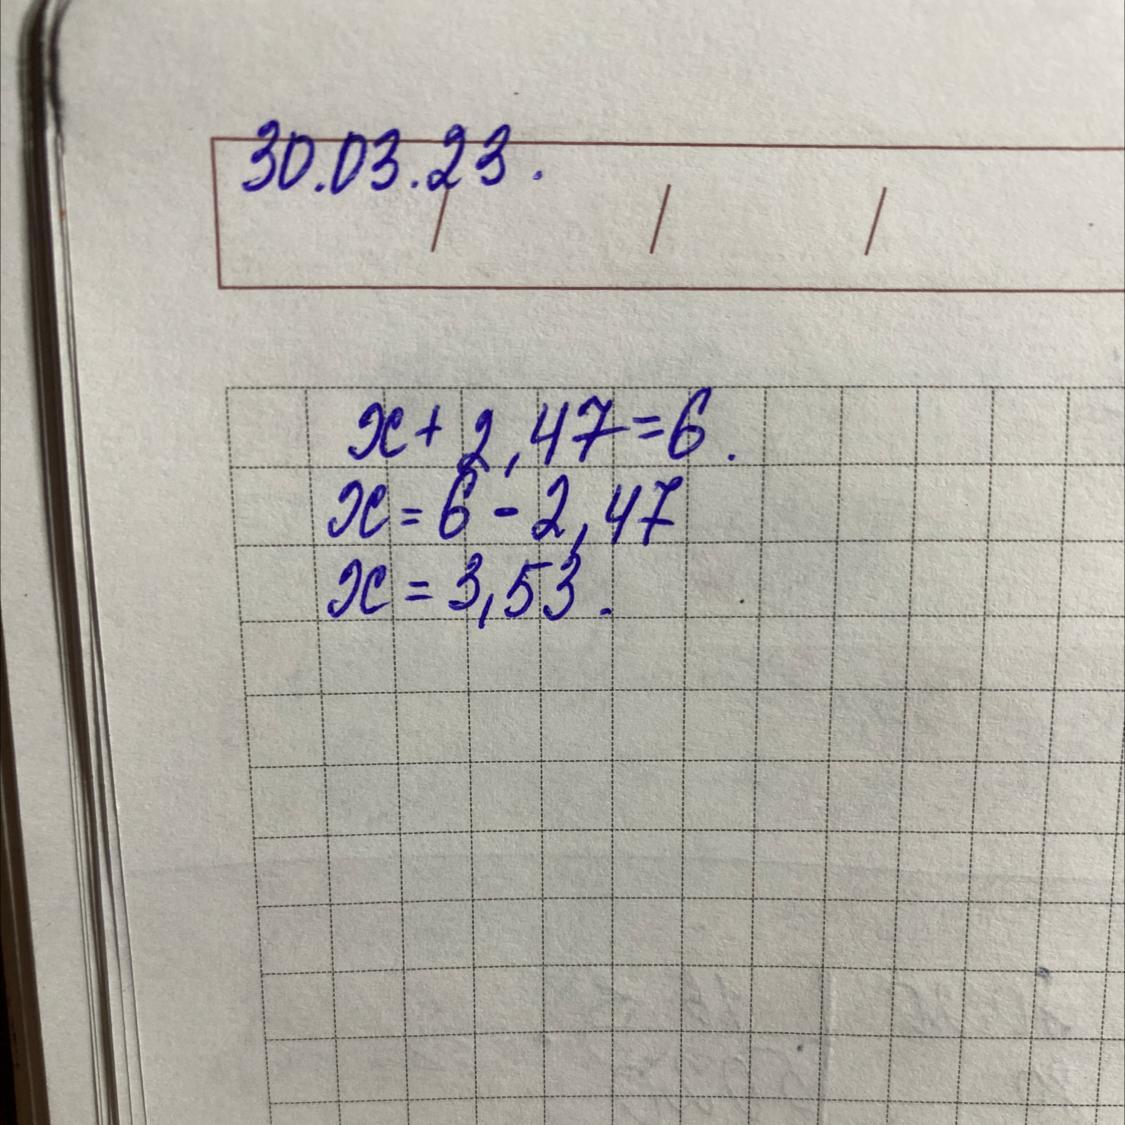 30.03.23.
x+2,47=6.
x=6-2,47
x=3,53.